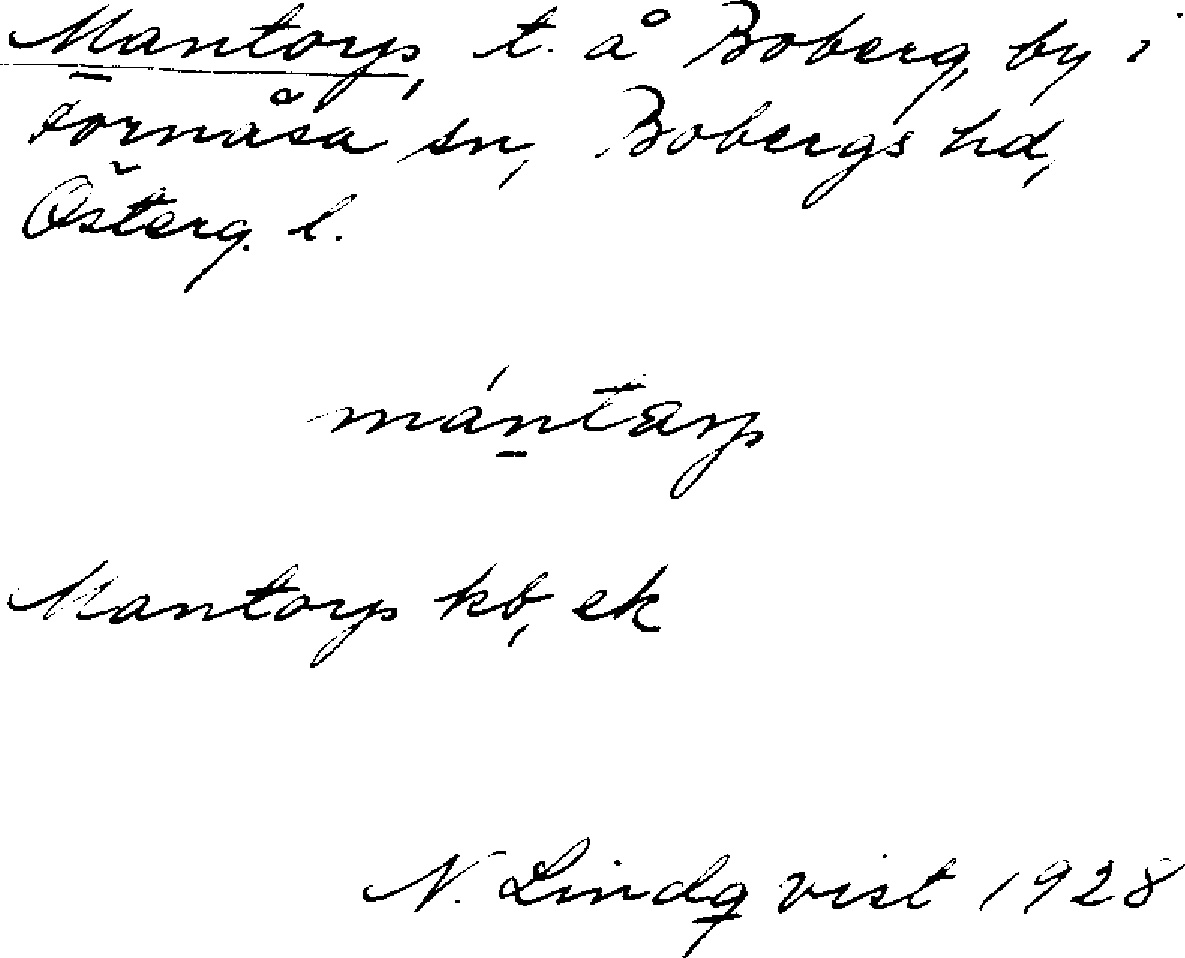 Mantorp, t. å Boberg, by i
Fornåsa sn, Bobergs hd,
Österg. l.
mántarp
Mantorp kb, ek
N. Lindqvist 1928